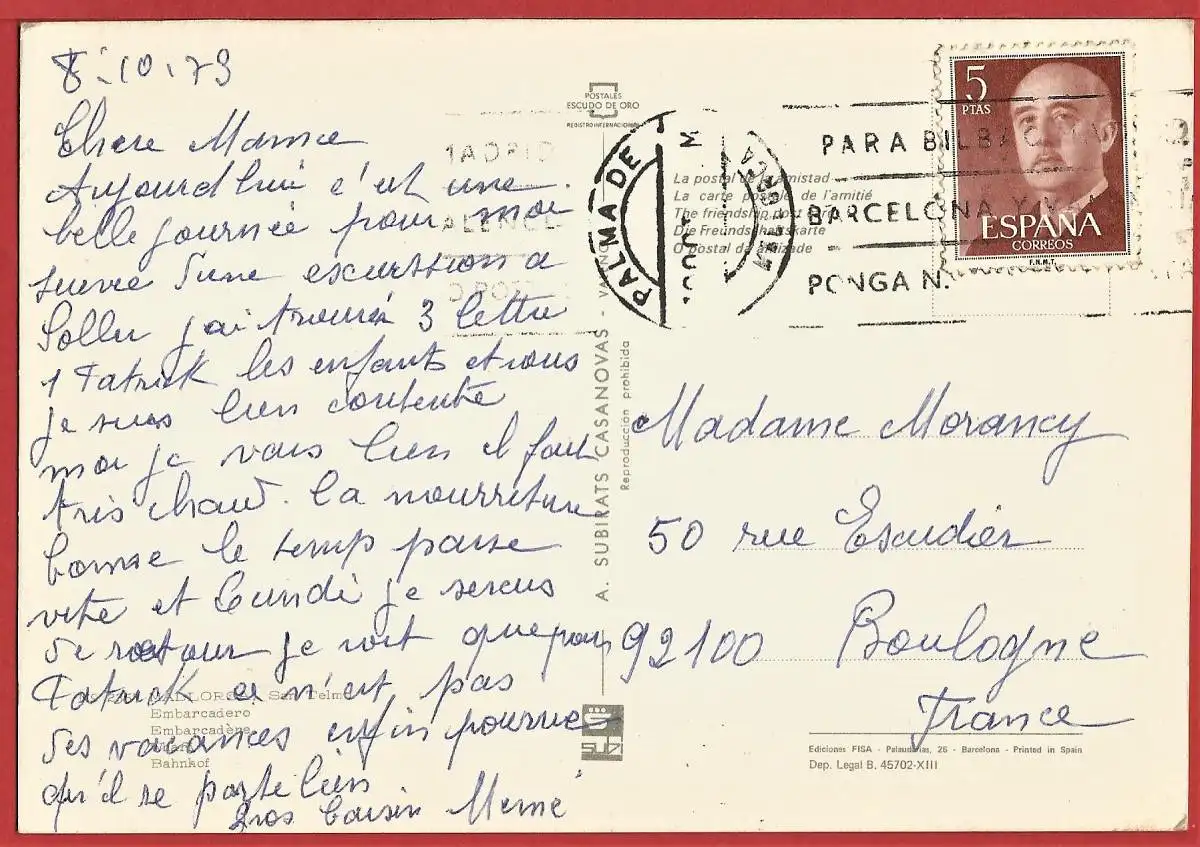 8.10.73
Chere Mamie
Aujourd'hui c'est une
belle journée pour moi
suivie d'une excurssion a
Soller j'ai trouvés 3 lettre
1 Patrick les enfants et vous
je suis bien contente
moi je vais bien il fait
très chaud. La nourriture
bonne le temp passe
vite et Lundi je serais
de retour je voit que pour
Patrick ce n'est pas
des vacances enfin pourvue
qu'il se porte bien
Gros Baisers Meme
POSTALES
ESCUDO DE ORO
REGISTRO INTERNACIONAL
La postal de la amistad
La carte postale de l'amitié
The friendship post card
Die Freundschaftskarte
O postal da amizade
PALMA DE
MALLORCA
PARA BILBAO
BARCELONA Y
PONGA N.
5
PTAS
ESPAÑA
CORREOS
F.N.M.T.
A. SUBIRATS CASANOVAS -
Reproducción prohibida
Madame Morancy
50 rue Escudier
92100 Boulogne
France
MALLORCA San Telmo
Embarcadero
Embarcadère
Bahnhof
Ediciones FISA - Palaudarias, 26 - Barcelona - Printed in Spain
Dep. Legal B. 45702-XIII